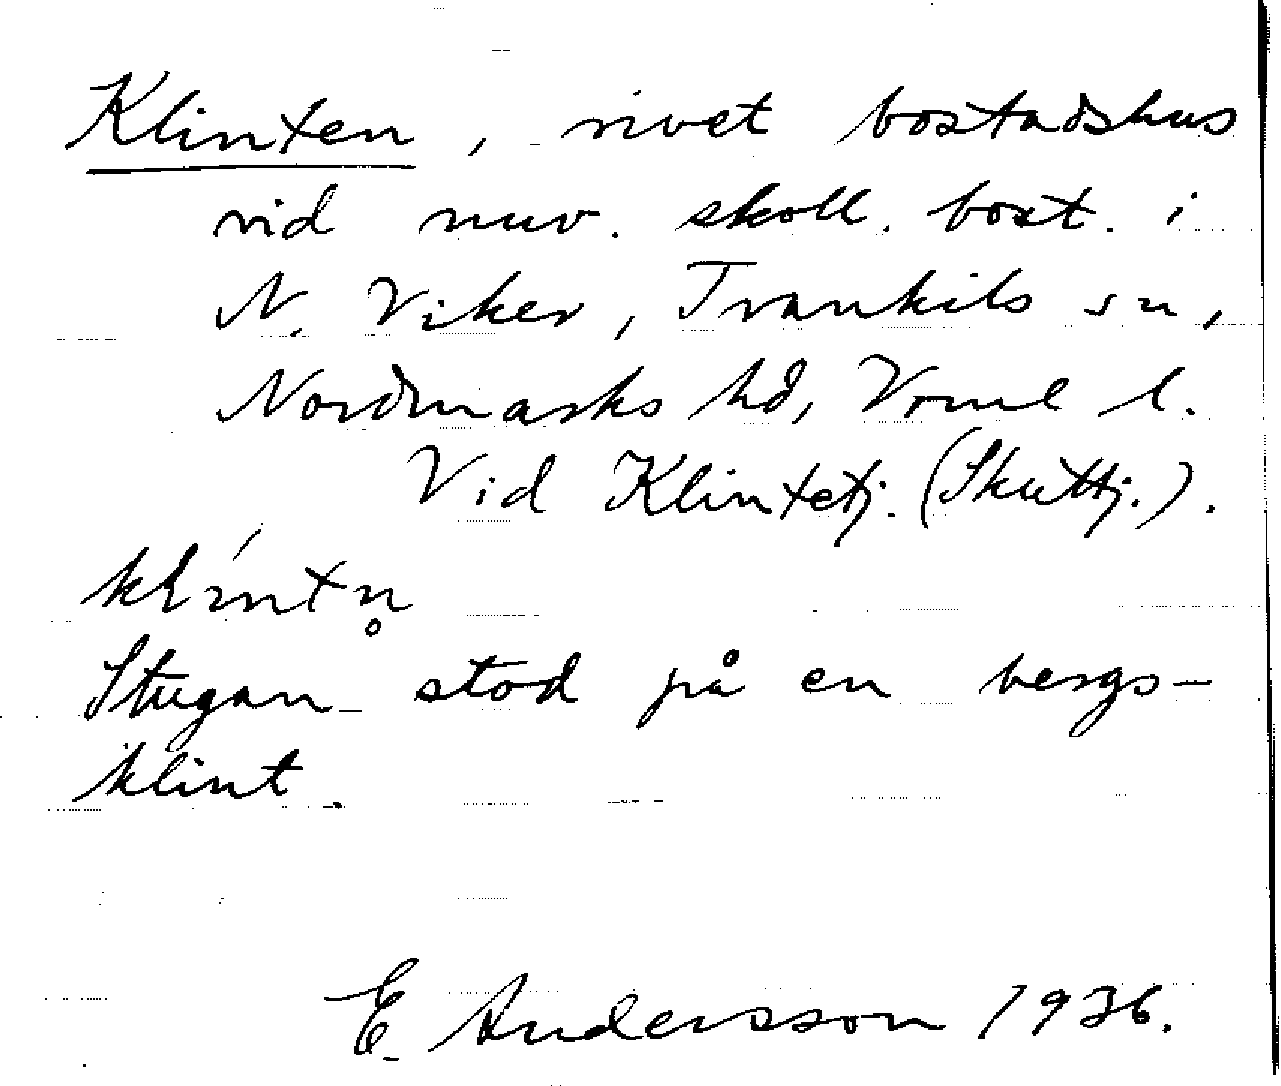 Klinten, rivet bostadshus
vid nuv. skoll. bost. i
N. Viker, Trankils sn,
Nordmarks hd, Vrml l.
Vid Klintetj. (Skuttj.).
klíntn̥
Stugan stod på en bergs-
klint.
E. Andersson 1936.